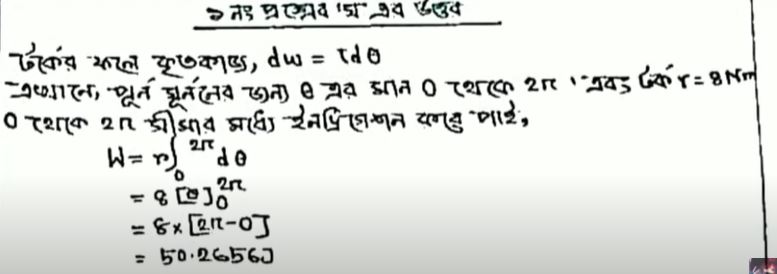 ১ নং প্রশ্নের 'ঘ' এর উত্তর
টর্কের ফলে কৃতকাজ, dw = τdθ
এখানে, পূর্ন ঘূর্ননের জন্য θ এর মান 0 থেকে 2π । এবং টর্ক τ = 8 Nm
0 থেকে 2π সীমার মধ্যে ইনট্রিগেশন করে পাই,
W = τ∫₀^2π dθ
= 8 [θ]₀^2π
= 8 × [2π-0]
= 50.2656J